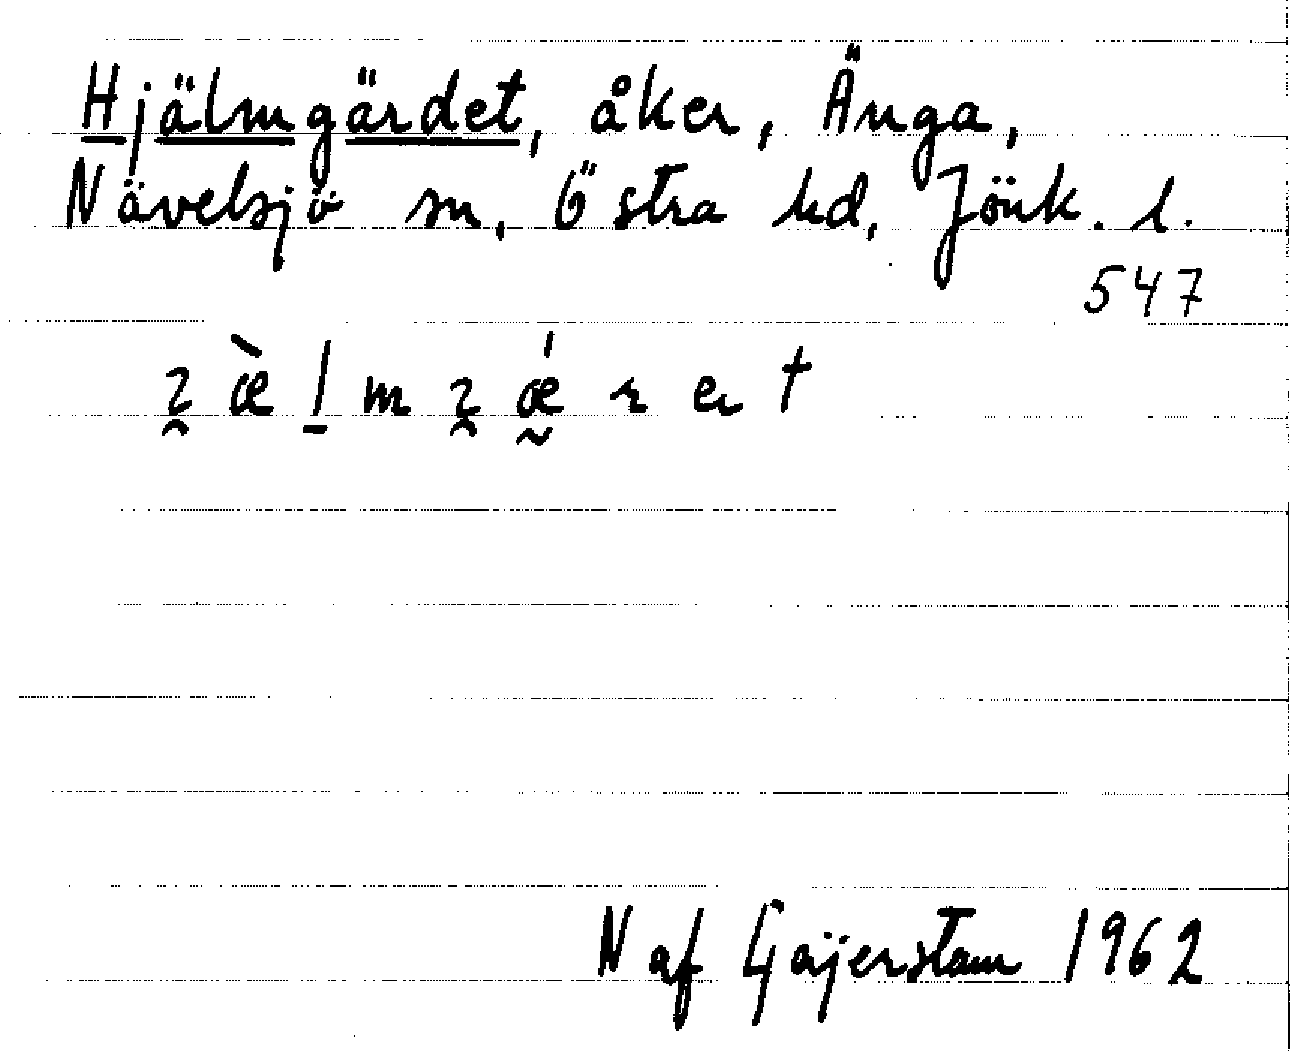 Hjälmgärdet, åker, Änga,
Nävelsjö sn, Östra hd, Jönk. l.
547
N af Gajerstam 1962